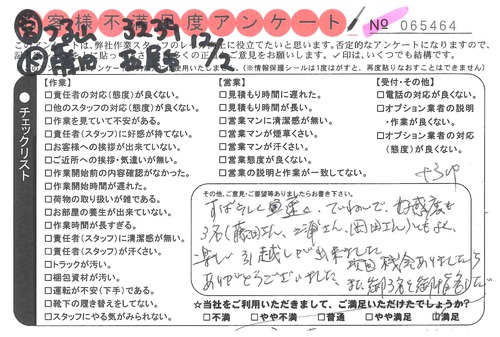 お客様不満足度アンケート
No 065464
このアンケートは、弊社作業スタッフのレベル向上に役立てたいと思います。否定的なアンケートになりますので、
✓印は、いくつでも結構です。
(※情報保護シールは1度はがすと、再度貼りなおすことはできません)
12/2
チェックリスト
【作業】
□責任者の対応(態度)が良くない。
□他のスタッフの対応(態度)が良くない。
□作業を見ていて不安がある。
□責任者(スタッフ)に好感が持てない。
□お客様への挨拶が出来ていない。
□ご近所への挨拶・気遣いが無い。
□作業開始前の内容確認がなかった。
□作業開始時間が遅れた。
□荷物の取り扱いが雑である。
□お部屋の養生が出来ていない。
□作業時間が長すぎる。
□責任者(スタッフ)に清潔感が無い。
□責任者(スタッフ)が汗くさい。
□トラックが汚い。
□梱包資材が汚い。
□運転が不安(下手)である。
□靴下の履き替えをしてない。
□スタッフにやる気がみられない。
【営業】
□見積もり時間に遅れた。
□見積もり時間が長い。
□営業マンに清潔感が無い。
□営業マンが煙草くさい。
□営業マンが汗くさい。
□営業態度が良くない。
□営業の説明と作業が一致してない。
【受付・その他】
□電話の対応が良くない。
□オプション業者の説明
・作業が良くない。
□オプション業者の対応
(態度)が良くない。
その他、ご意見・ご要望等ありましたらお書き下さい。
すばらしく迅速で、ていねいで、好感度も
3名(藤田さん、三浦さん、岡田さん)ともよく、
楽しい引越しが出来ました
ありがとうございました。次回機会ありましたら
また、御3名を御指名して
☆当社をご利用いただきまして、ご満足いただけたでしょうか?
□不満 □やや不満 □普通 □やや満足 □満足